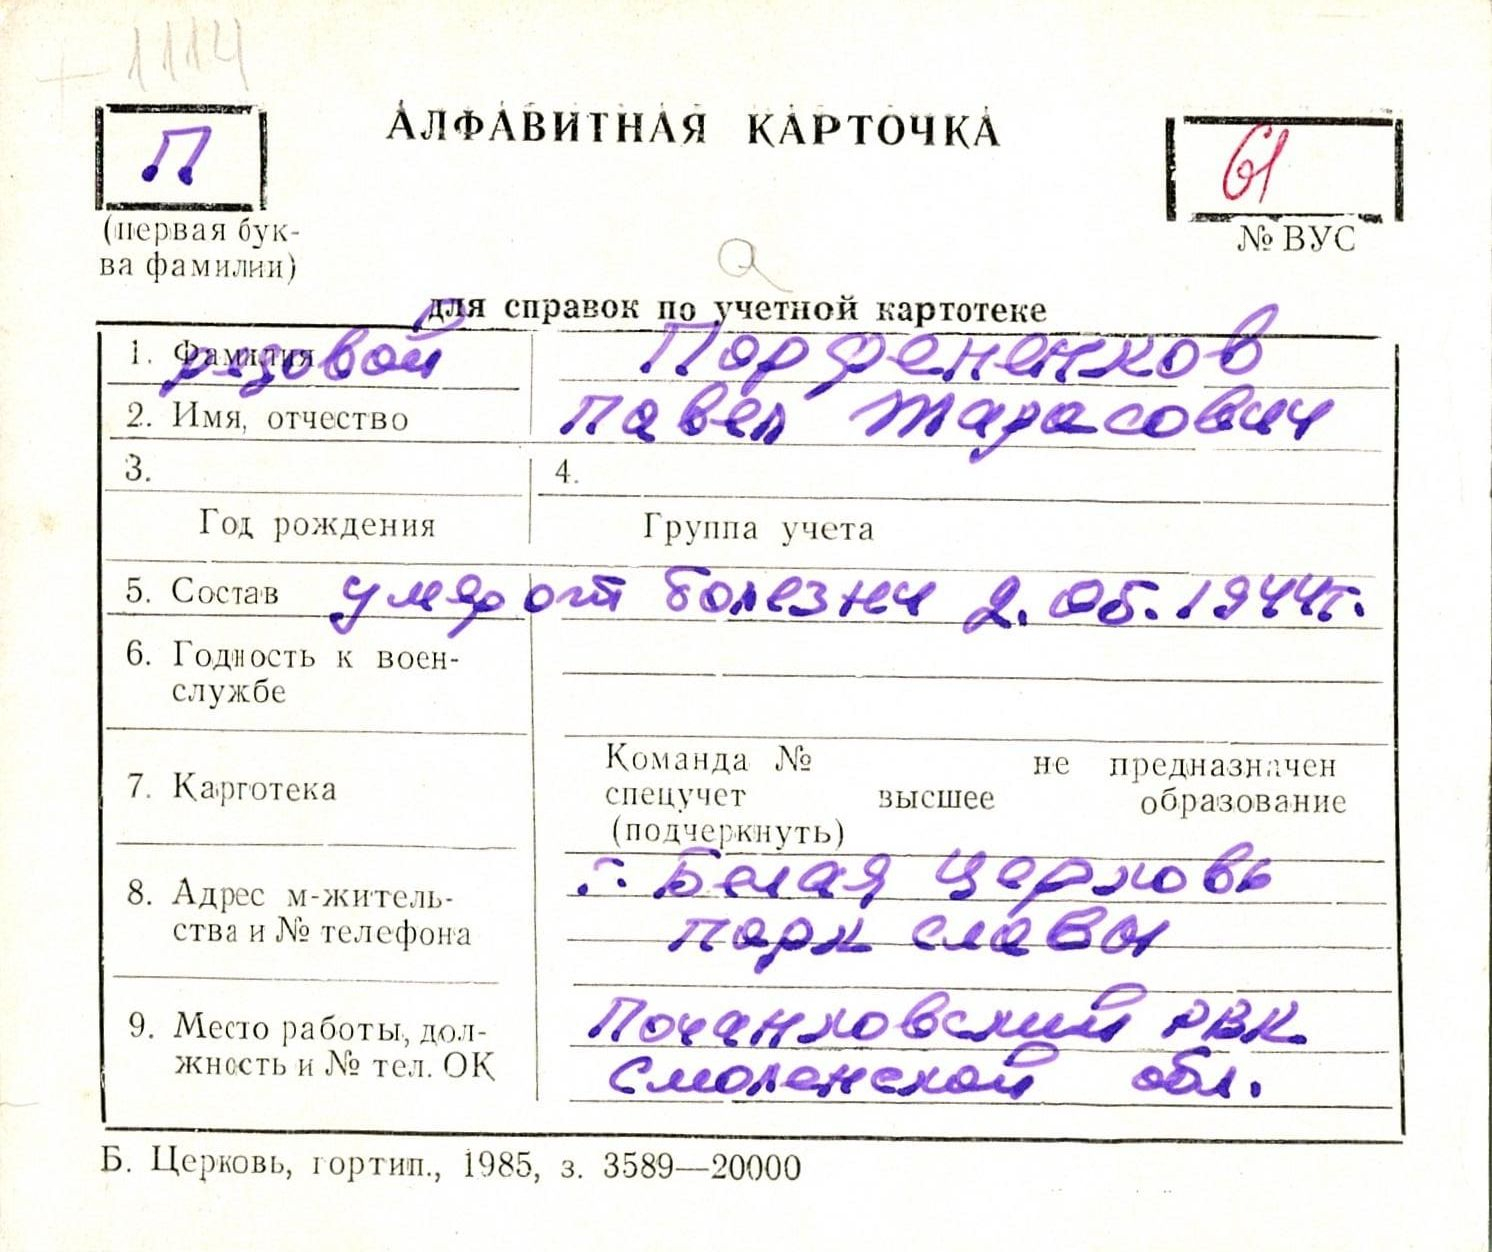 +1114
П
АЛФАВИТНАЯ КАРТОЧКА
61
(первая бук-
ва фамилии)
№ ВУС
для справок по учетной картотеке
1. Фамилия рядовой Парфененков
2. Имя, отчество Павел Тарасович
3. 4.
Год рождения Группа учета
5. Состав умер от болезни 2.05.1944г.
6. Годность к воен-
службе
7. Карготека
Команда № не предназначен
спецучет высшее образование
(подчеркнуть)
8. Адрес м-житель-
ства и № телефона
г. Белая Церковь
парк славы
9. Место работы, дол-
жность и № тел. ОК
Починковский РВК
Смоленской обл.
Б. Церковь, гортип., 1985, з. 3589—20000